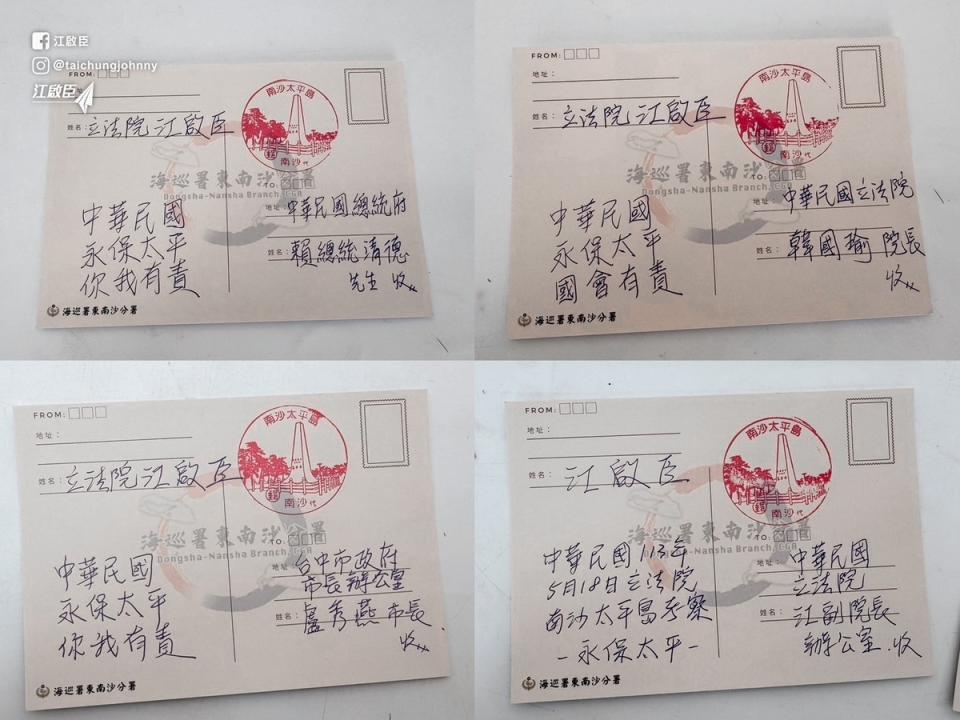 江啟臣
@taichungjohnny
江啟臣
FROM:
姓名：立法院 江啟臣
南沙太平島
郵
南沙 代
海巡署東南沙分署
Dongsha-Nansha Branch, CGA
TO:
地址：中華民國總統府
姓名：賴總統清德
先生 收
中華民國
永保太平
你我有責
海巡署東南沙分署
FROM:
地址：
姓名：立法院 江啟臣
南沙太平島
郵
南沙 代
海巡署東南沙分署
Dongsha-Nansha Branch, CGA
TO:
地址：中華民國立法院
姓名：韓國瑜 院長
收
中華民國
永保太平
國會有責
海巡署東南沙分署
FROM:
地址：
姓名：立法院 江啟臣
南沙太平島
郵
南沙 代
海巡署東南沙分署
Dongsha-Nansha Branch, CGA
TO:
地址：台中市政府
市長辦公室
姓名：盧秀燕 市長
收
中華民國
永保太平
你我有責
海巡署東南沙分署
FROM:
地址：
姓名：江啟臣
南沙太平島
郵
南沙 代
海巡署東南沙分署
Dongsha-Nansha Branch, CGA
TO:
地址：中華民國
立法院
姓名：江副院長
辦公室 收
中華民國113年
5月18日立法院
南沙太平島考察
-永保太平-
海巡署東南沙分署